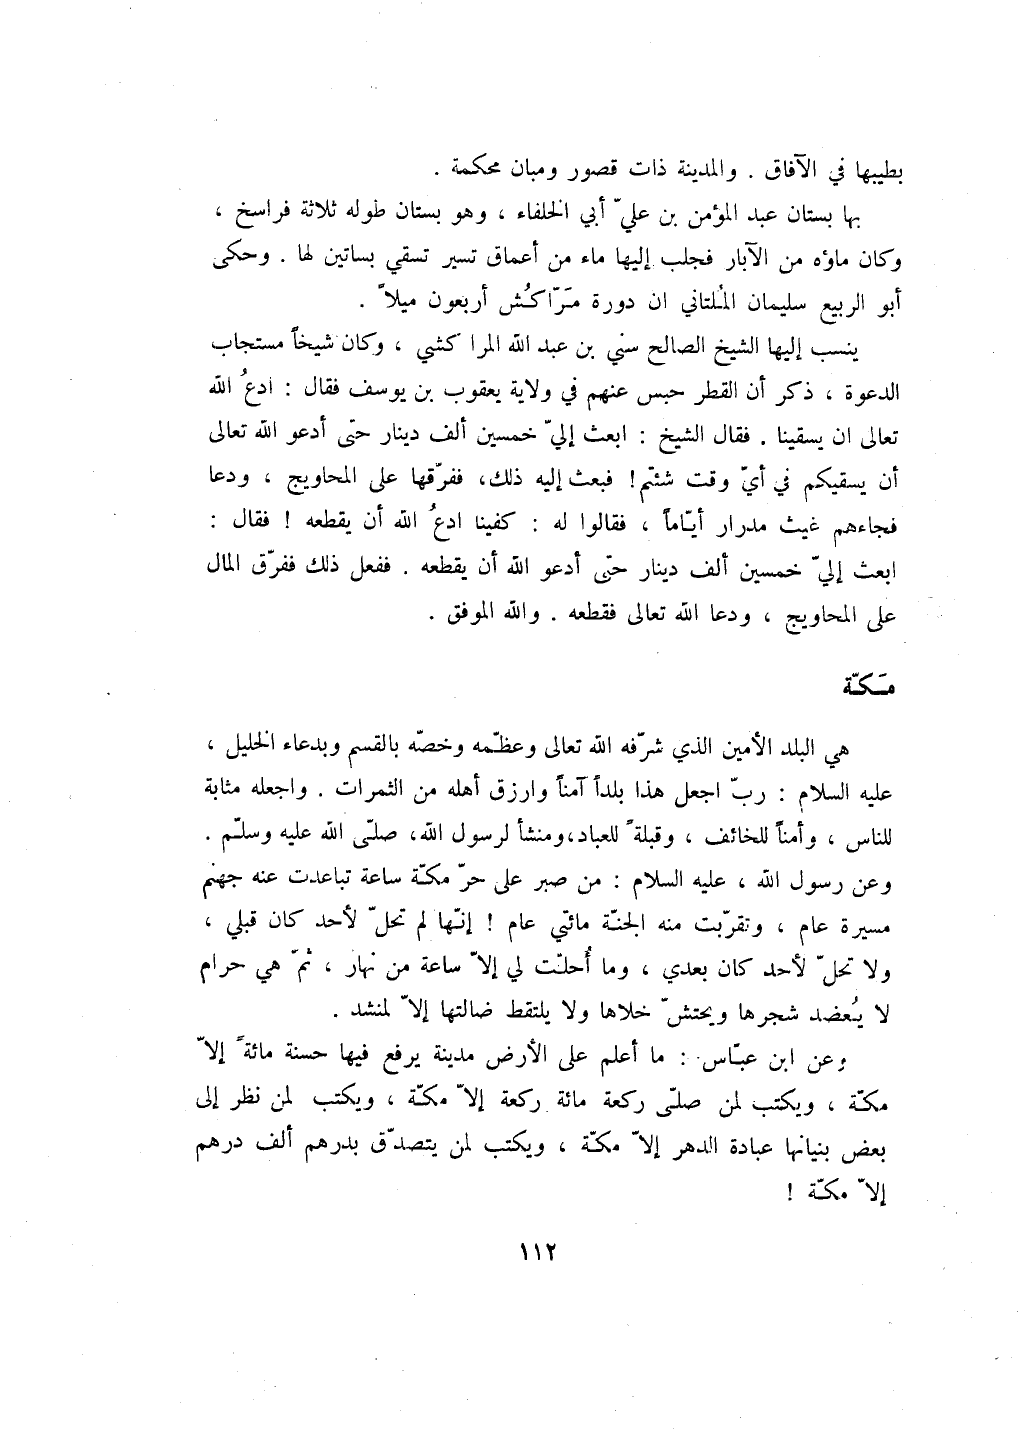 بطيبها في الآفاق . والمدينة ذات قصور ومبان محكمة .
بها بستان عبد المؤمن بن عليّ أبي الخلفاء ، وهو بستان طوله ثلاثة فراسخ ،
وكان ماؤه من الآبار فجلب إليها ماء من أعماق تسير تسقي بساتين لها . وحكى
أبو الربيع سليمان المُلتاني ان دورة مَرّاكُش أربعون ميلاً .
ينسب إليها الشيخ الصالح سني بن عبد الله المراكشي ، وكان شيخاً مستجاب
الدعوة ، ذكر أن القطر حبس عنهم في ولاية يعقوب بن يوسف فقال : ادعُ الله
تعالى ان يسقينا . فقال الشيخ : ابعث إليّ خمسين ألف دينار حتّى أدعو الله تعالى
أن يسقيكم في أيّ وقت شئتم! فبعث إليه ذلك، ففرّقها على المحاويج ، ودعا
فجاءهم غيث مدرار أيّاماً ، فقالوا له : كفينا ادعُ الله أن يقطعه ! فقال :
ابعث إليّ خمسين ألف دينار حتّى أدعو الله أن يقطعه . ففعل ذلك ففرّق المال
على المحاويج ، ودعا الله تعالى فقطعه . والله الموفق .
مَكّة
هي البلد الأمين الذي شرّفه الله تعالى وعظّمه وخصّه بالقسم وبدعاء الخليل ،
عليه السلام : ربّ اجعل هذا بلداً آمناً وارزق أهله من الثمرات . واجعله مثابة
للناس ، وأمناً للخائف ، وقبلةً للعباد،ومنشأ لرسول الله، صلّى الله عليه وسلّم .
وعن رسول الله ، عليه السلام : من صبر على حرّ مكّة ساعة تباعدت عنه جهنم
مسيرة عام ، وتقرّبت منه الجنّة مائتي عام ! إنّها لم تحلّ لأحد كان قبلي ،
ولا تحلّ لأحد كان بعدي ، وما أُحلّت لي إلاّ ساعة من نهار ، ثمّ هي حرام
لا يُعضد شجرها ويحتشّ خلاها ولا يلتقط ضالتها إلاّ لمنشد .
وعن ابن عبّاس : ما أعلم على الأرض مدينة يرفع فيها حسنة مائةً إلاّ
مكّة ، ويكتب لمن صلّى ركعة مائة ركعة إلاّ مكّة ، ويكتب لمن نظر إلى
بعض بنيانها عبادة الدهر إلاّ مكّة ، ويكتب لمن يتصدّق بدرهم ألف درهم
إلاّ مكّة !
١١٢